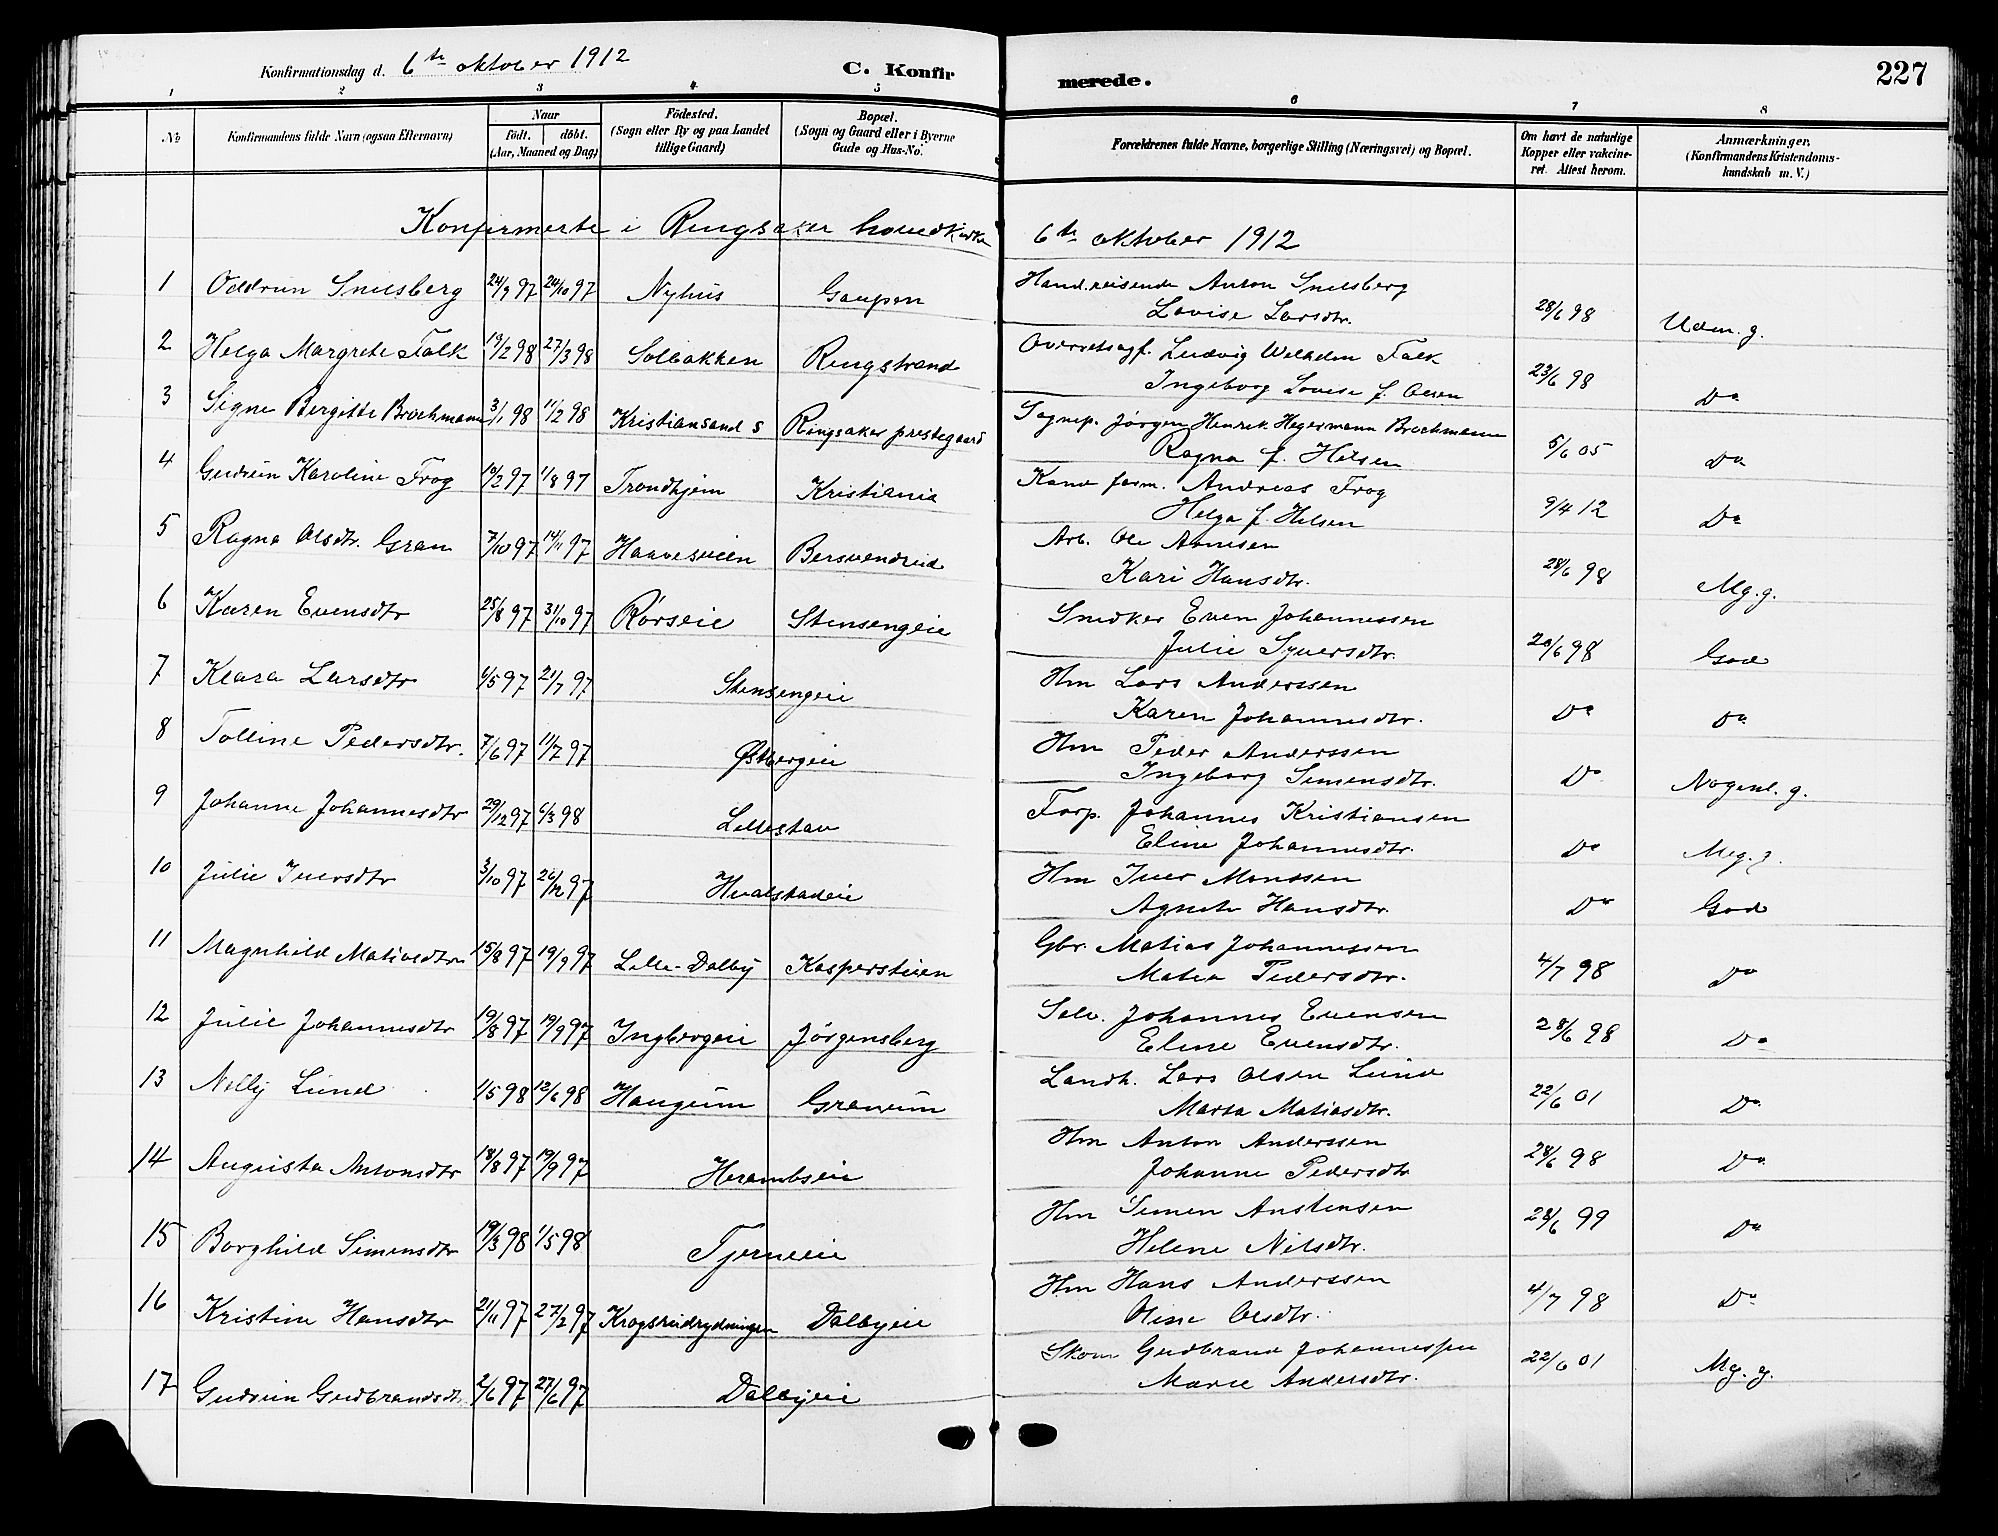 Konfirmationsdag d. 6te oktober 1912 C. Konfir merede. 227
1 2 3 4 5 6 7 8
No Konfirmandens fulde Navn (ogsaa Efternavn) Naar født. døbt. (Aar, Maaned og Dag) Fødested. (Sogn eller By og paa Landet tillige Gaard) Bopæl. (Sogn og Gaard eller i Byerne Gade og Hus-No. Forældrenes fulde Navne, borgerlige Stilling (Næringsvei) og Bopæl. Om havt de naturlige Kopper eller vakcineret. Attest herom. Anmærkninger. (Konfirmandens Kristendomskundskab m. V.)
Konfirmerte i Ringsaker hovedkirke 6te oktober 1912
1 Oddrun Snilsberg 24/9 97 24/10 97 Nyhus Gaupen Hand.reisende Anton Snilsberg
Lovise Larsdtr. 28/6 98 Udm. g.
2 Helga Margrete Falk 19/2 98 27/3 98 Solbakken Ringstrand Overretssagf. Ludvig Wilhelm Falk
Ingeborg Lovise f. Olsen 23/6 98 Do
3 Signe Bergitte Brochmann 3/1 98 11/2 98 Kristiansand S Ringsaker prestegaard Sognep. Jørgen Henrik Hegermann Brochmann
Ragna f. Hilsen 5/6 05 Do
4 Gudrun Karoline Frog 10/2 97 1/8 97 Trondhjem Kristiania Kand farm. Andreas Frog
Helga f. Hilsen 9/4 12 Do
5 Ragna Olsdtr. Gran 7/10 97 14/11 97 Haavesveen Bersvendreid Arb. Ole Arnesen
Kari Hansdtr. 28/6 98 Mg. g.
6 Karen Evensdtr 25/8 97 31/10 97 Rørseie Stensengeie Snedker Even Johannessen
Julie Syversdtr. 20/6 98 God
7 Klara Larsdtr 6/5 97 21/7 97 Stensengeie Hm Lars Anderssen
Karen Johannesdtr. Do Do
8 Tolline Pedersdtr. 7/6 97 11/7 97 Østbergeie Hm Peder Anderssen
Ingeborg Simensdtr. Do Nogenl. g.
9 Johanne Johannesdtr 29/12 97 6/3 98 Lillestav Forp. Johannes Kristiansen
Eline Johannesdtr. Do Meg. g.
10 Julie Iversdtr 3/10 97 26/12 97 Hvalstadeie Hm Iver Monssen
Agnete Hansdtr. Do God
11 Magnhild Matiasdtr 15/8 97 19/9 97 Lille-Dalby Kasperstuen Gbr. Matias Johannessen
Matea Pedersdtr. 4/7 98 Do
12 Julie Johannesdtr 19/8 97 19/9 97 Ingbergeie Jørgensberg Selv. Johannes Evensen
Eline Evensdtr. 28/6 98 Do
13 Nelly Lund 1/5 98 12/6 98 Haugeum Granum Landh. Lars Olsen Lund
Marta Matiasdtr. 22/6 01 Do
14 Augusta Antonsdtr 18/8 97 19/9 97 Herambseie Hm Anton Anderssen
Johanne Pedersdtr 28/6 98 Do
15 Borghild Simensdtr 19/3 98 1/5 98 Tjerneie Hm Simen Anstensen
Helene Nilsdtr. 28/6 99 Do
16 Kristine Hansdtr 21/11 97 27/12 97 Krogsrudrydningen Dalbyeie Hm Hans Anderssen
Oline Olsdtr. 4/7 98 Do
17 Gudrun Gudbrandsdt. 2/6 97 27/6 97 Dalbyeie Skom Gudbrand Johannessen
Marie Andersdtr. 22/6 01 Mg. g.